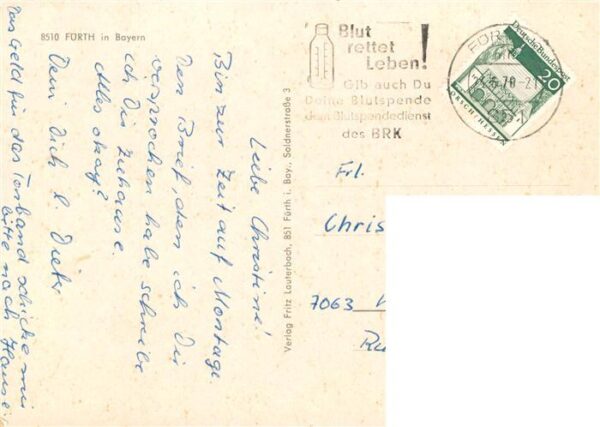 8510 FÜRTH in Bayern
Liebe Christine!
Bin zur Zeit auf Montage.
Den Brief, den ich Dir
versprochen habe schreibe
ich Dir zuhause.
Alles okay?
Dein Dich l. Dieter
Das Geld für das Tonband schicke mir
bitte nach Hause.
Verlag Fritz Lauterbach, 851 Fürth i. Bay., Soldnerstraße 3
Blut
rettet
Leben!
Gib auch Du
Deine Blutspende
dem Blutspendedienst
des BRK
FÜR
70-21
Deutsche Bundespost
20
LORSCH/HESSEN
Frl.
Chris
7063